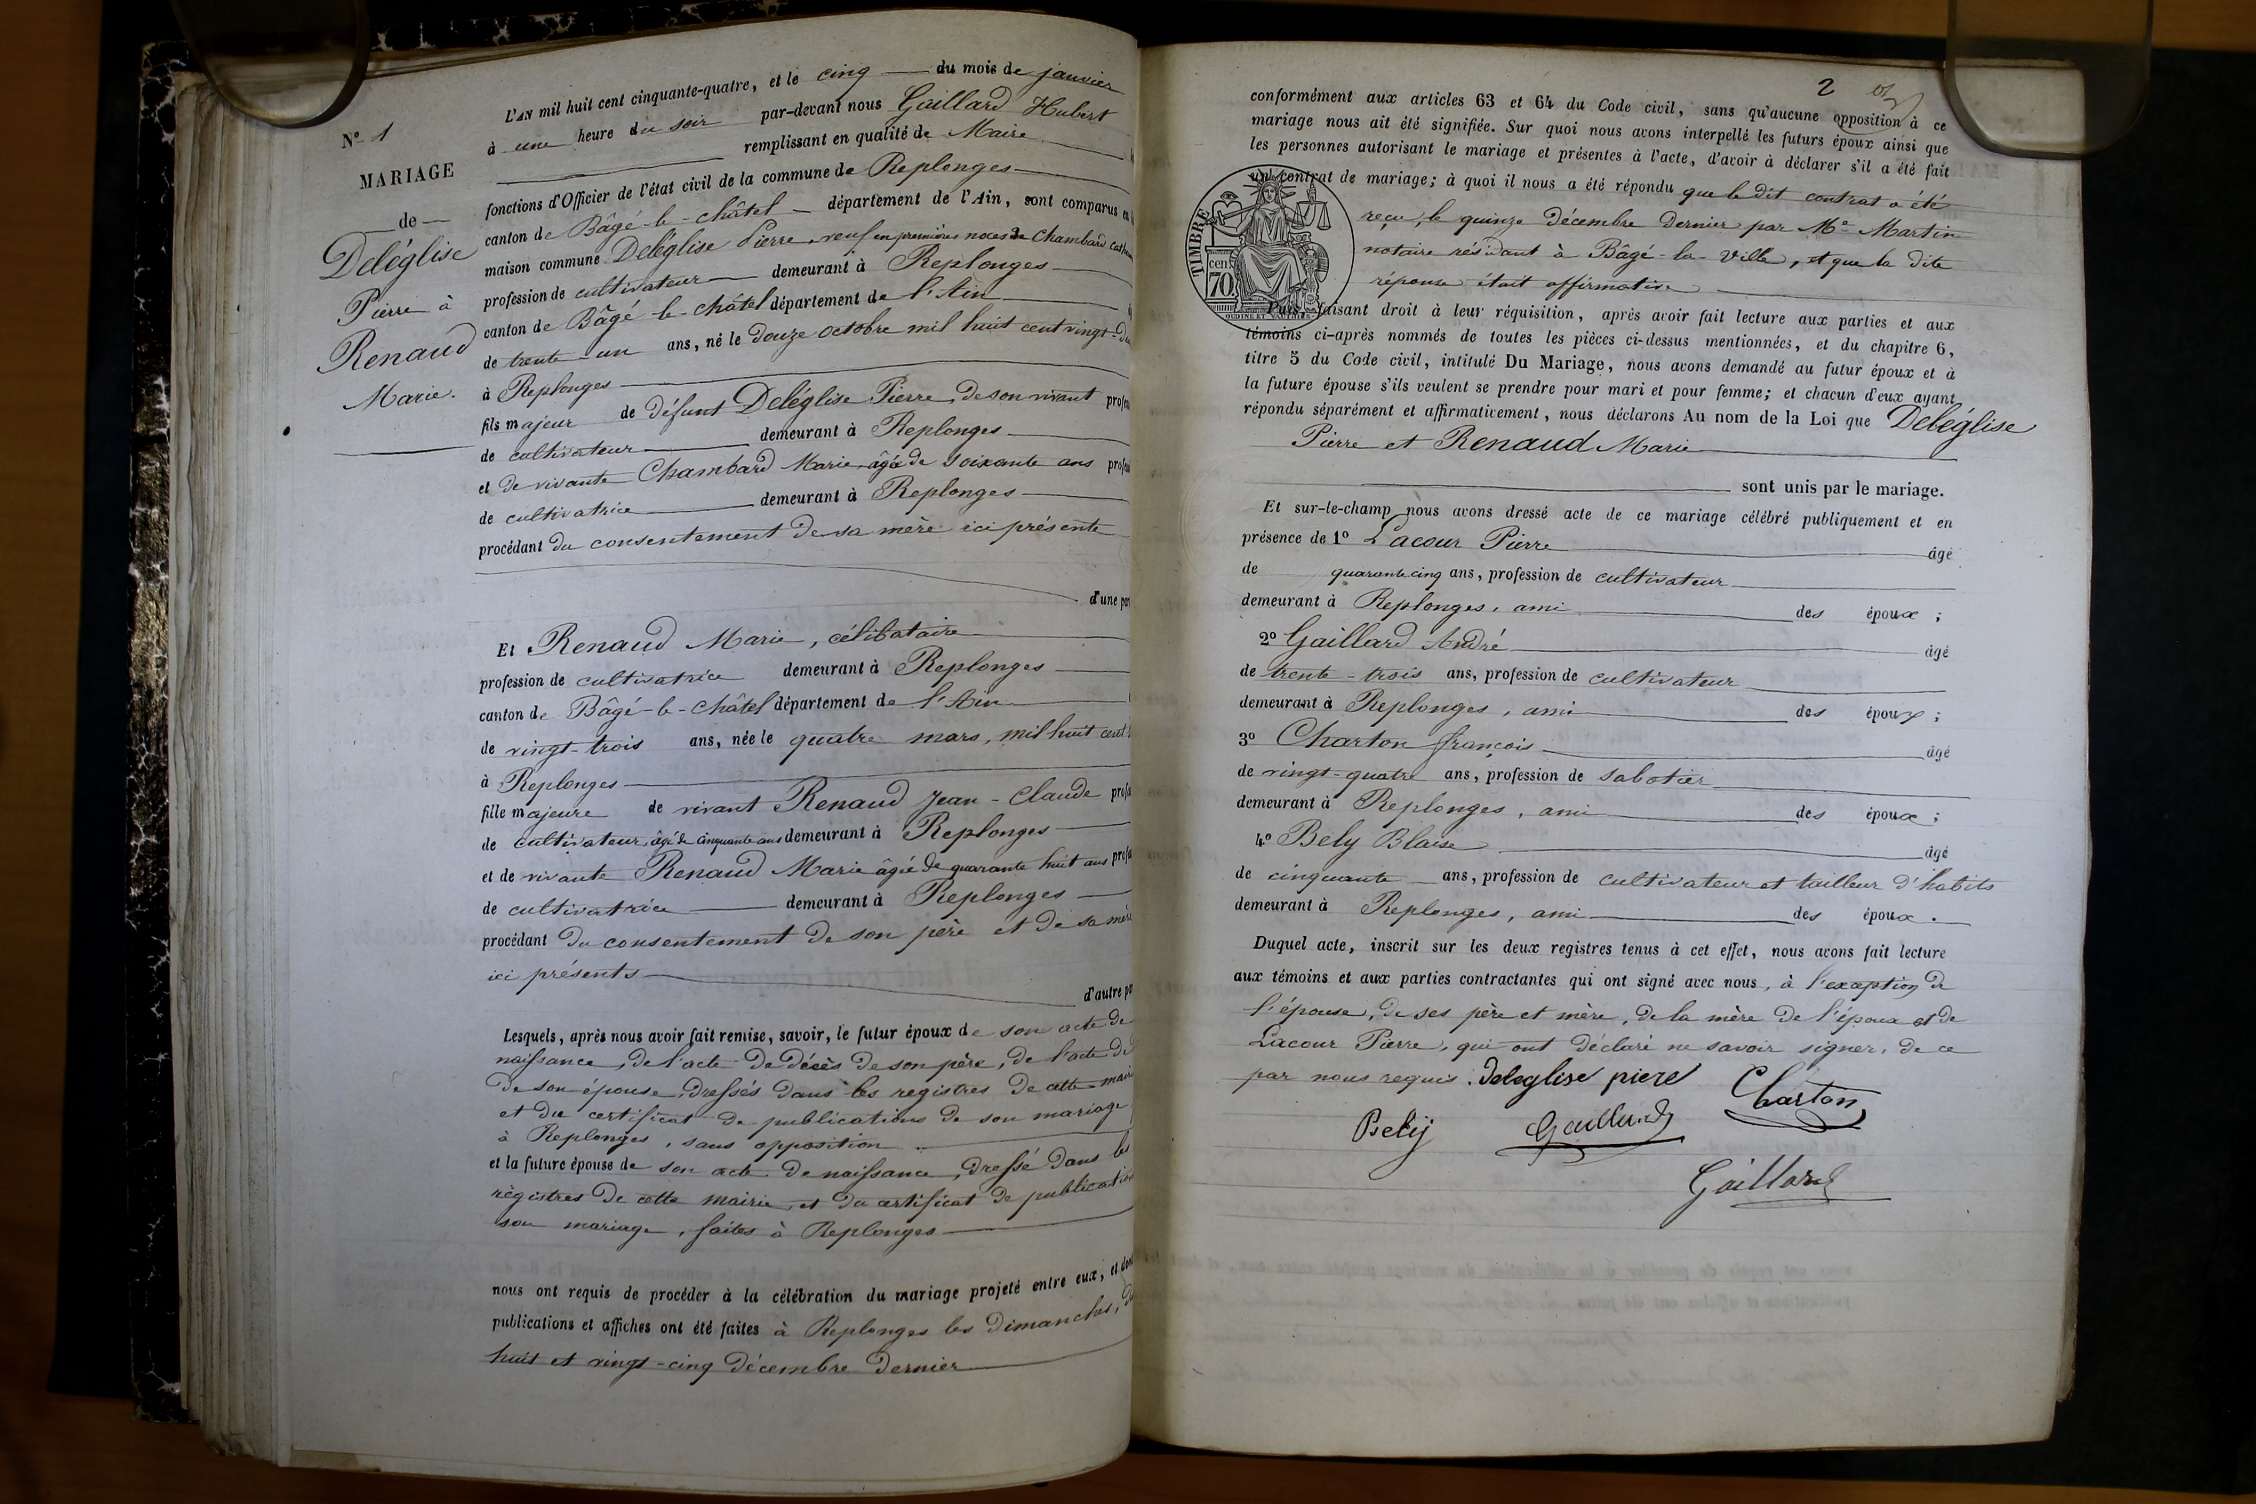 N° 1
MARIAGE
de
Deléglise
Pierre à
Renaud
Marie.
L'AN mil huit cent cinquante-quatre, et le cinq du mois de janvier
à une heure du soir par-devant nous Gaillard Hubert
remplissant en qualité de Maire
fonctions d'Officier de l'état civil de la commune de Replonges
canton de Bâgé-le-châtel département de l'Ain, sont comparus en
maison commune Deléglise Pierre, veuf en premières noces de Chambard
profession de cultivateur demeurant à Replonges
canton de Bâgé-le-châtel département de l'Ain
de trente-un ans, né le douze octobre mil huit cent vingt-
à Replonges
fils majeur de défunt Deléglise Pierre, de son vivant
de cultivateur demeurant à Replonges
et de vivante Chambard Marie âgée de soixante ans
de cultivatrice demeurant à Replonges
procédant du consentement de sa mère ici présente
d'une
Et Renaud Marie, célibataire
profession de cultivatrice demeurant à Replonges
canton de Bâgé-le-châtel département de l'Ain
de vingt-trois ans, née le quatre mars, mil huit cent
à Replonges
fille majeure de vivant Renaud Jean-Claude
de cultivateur, âgé de cinquante ans demeurant à Replonges
et de vivante Renaud Marie âgée de quarante huit ans
de cultivatrice demeurant à Replonges
procédant du consentement de son père et de sa mère
ici présents
d'autre
Lesquels, après nous avoir fait remise, savoir, le futur époux de son acte de
naissance, de l'acte de décès de son père, de l'acte de
de son épouse, dressés dans les registres de cette mairie
et du certificat de publications de son mariage
à Replonges, sans opposition
et la future épouse de son acte de naissance, dressé dans les
régistres de cette mairie, et du certificat de publication
son mariage, faites à Replonges
nous ont requis de procéder à la célébration du mariage projeté entre eux, et dont
publications et affiches ont été faites à Replonges les dimanches,
huit et vingt-cinq décembre dernier
2
conformément aux articles 63 et 64 du Code civil, sans qu'aucune opposition à ce
mariage nous ait été signifiée. Sur quoi nous avons interpellé les futurs époux ainsi que
les personnes autorisant le mariage et présentes à l'acte, d'avoir à déclarer s'il a été fait
un contrat de mariage; à quoi il nous a été répondu que le dit contrat a été
reçu, le quinze décembre dernier par Me Martin
notaire résidant à Bâgé-la-Ville, et que la dite
réponse était affirmative
TIMBRE
cen.
70
Puis, faisant droit à leur réquisition, après avoir fait lecture aux parties et aux
témoins ci-après nommés de toutes les pièces ci-dessus mentionnées, et du chapitre 6,
titre 5 du Code civil, intitulé Du Mariage, nous avons demandé au futur époux et à
la future épouse s'ils veulent se prendre pour mari et pour femme; et chacun d'eux ayant
répondu séparément et affirmativement, nous déclarons Au nom de la Loi que Deléglise
Pierre et Renaud Marie
sont unis par le mariage.
Et sur-le-champ nous avons dressé acte de ce mariage célébré publiquement et en
présence de 1° Lacour Pierre âgé
de quarante cinq ans, profession de cultivateur
demeurant à Replonges, ami des époux;
2° Gaillard André âgé
de trente-trois ans, profession de cultivateur
demeurant à Replonges, ami des époux;
3° Charton françois âgé
de vingt-quatre ans, profession de sabotier
demeurant à Replonges, ami des époux;
4° Bely Blaise âgé
de cinquante ans, profession de cultivateur et tailleur d'habits
demeurant à Replonges, ami des époux.
Duquel acte, inscrit sur les deux registres tenus à cet effet, nous avons fait lecture
aux témoins et aux parties contractantes qui ont signé avec nous, à l'exeption de
l'épouse, de ses père et mère, de la mère de l'époux et de
Lacour Pierre, qui ont déclaré ne savoir signer, de ce
par nous requis. deleglise piere Charton
Bely Gaillard
Gaillard